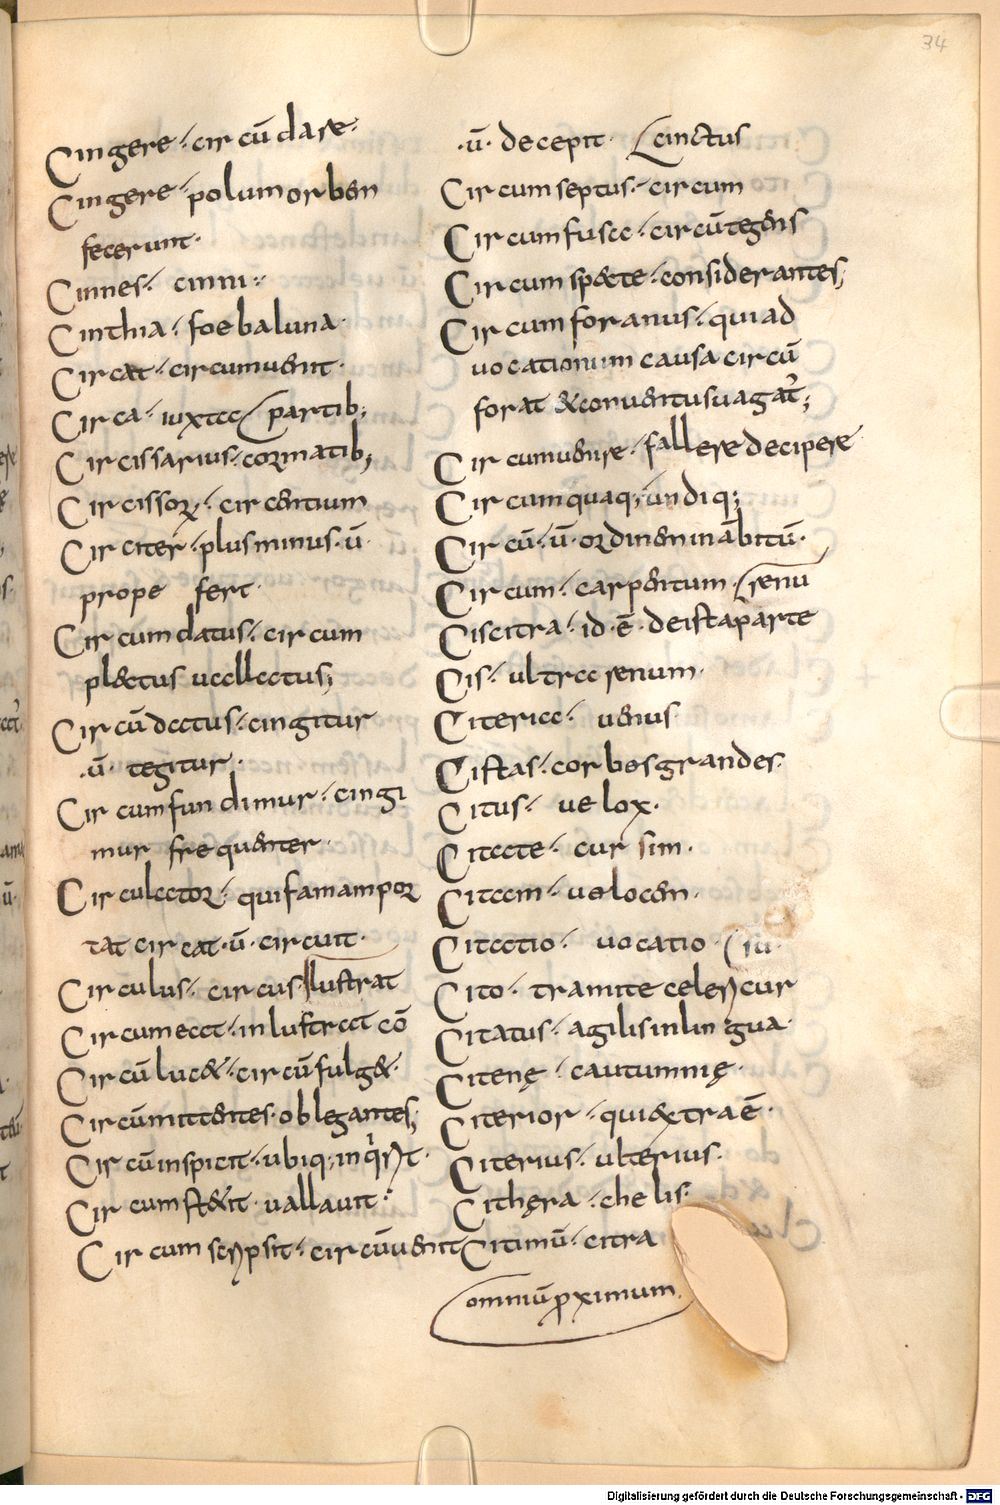 34
Cingere·/ circū dare·
Cingere·/ polum orben
fecerunt·
Cinnes·/ cinni·:
Cinthia·/ foeba luna·
Circat·/ circumuenit·
Circa·/ iuxta partib;
Circissarius·/ cormatib;
Circissoꝝ·/ circentium
Circiter·/ plus minus·ū·
prope fert·
Circumdatus·/ circum
plectus uallatus;
Circūdatus·/ cingitur
·ū· tegitur·
Circumfundimur·/ cingi
mur frequenter·
Circulator·/ qui famam por
tat circat·ū·circuit·
Circulus·/ circus lustrat
Circumeat·/ inlustrat cō
Circūluc&·/ circūfulg&·
Circūmittentes· oblegantes;
Circūinspicit·/ ubiq; inq̇rit·
Circumst&it· uallauit·
Circumscripsit·/ circūuenit
·ū· decepit· cinctus
Circumseptus·/ circum
Circumfusa·/ circūtegens
Circumsp&te·/ considerantes;
Circumforanus·/ qui ad
uocationum causa circū
forat & conuentus uagat᷑;
Circumuenire·/ fallere decipere
Circumquaq;·/ undiq;
Circū·ū· ordinem in ābitū·
Circum·/ carpentum· renu
Siscitra·/ id·ē· de ista parte
Cis·/ ultra renum·
Citeria·/ uenus
Cistas·/ corbes grandes·
Citus·/ uelox·
Citate·/ cursim·
Citam·/ uelocem·
Citatio·/ uocatio· iū·
Cito·/ tramite celeri cur
Citatus·/ agilis in lingua·
Citenę·/ cautumnię·
Citerior·/ qui extra ē·
Citerius·/ ulterius·
Cithęra·/ chelis·
Citimū·/ citra
omniū proximum·
Digitalisierung gefördert durch die Deutsche Forschungsgemeinschaft - DFG